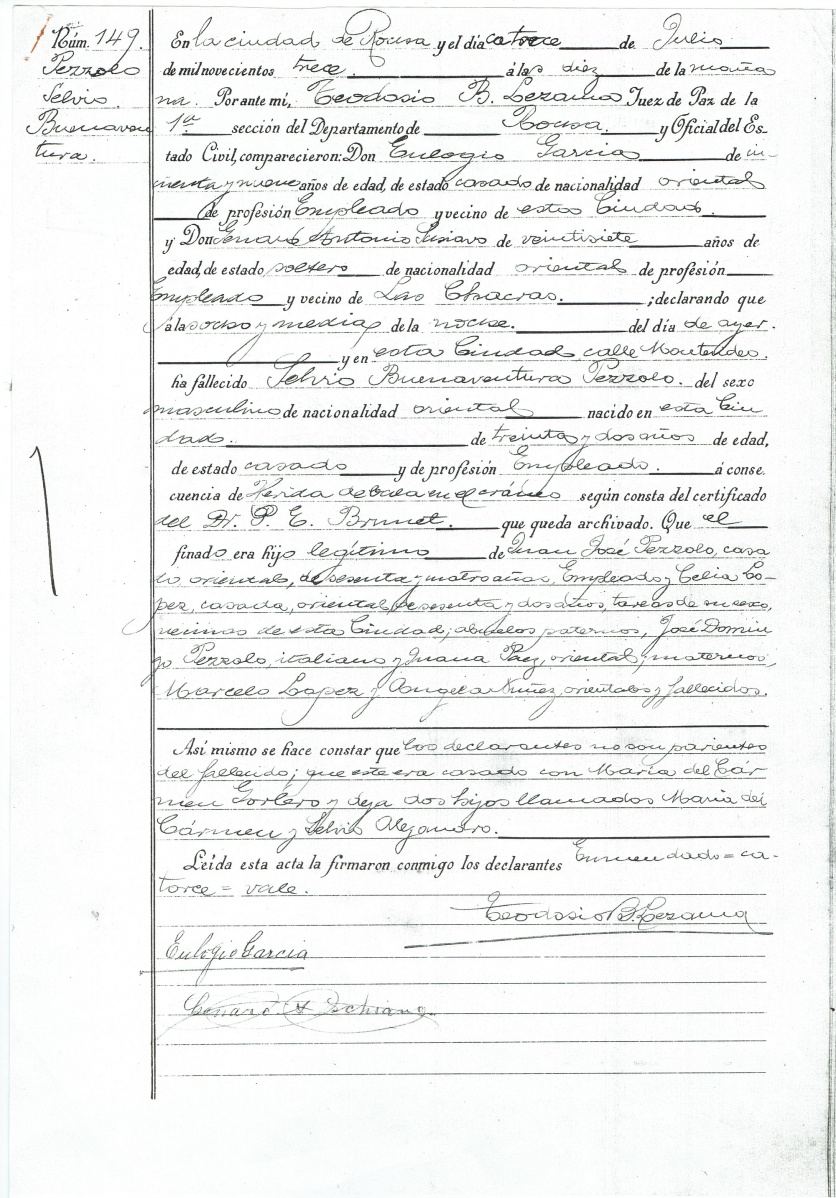 Núm. 149.
Pezzolo
Selvio
Buenaven
tura.
En la ciudad de Rocha y el día catorce de Julio
de mil novecientos trece á las diez de la maña
na. Por ante mí, Teodosio B. Lezama Juez de Paz de la
1ª sección del Departamento de Rocha y Oficial del Es-
tado Civil, comparecieron: Don Eulogio Garcia de cin
cuenta y nueve años de edad, de estado casado de nacionalidad oriental
de profesión Empleado y vecino de esta Ciudad
y Don Genaro Antonio de veintisiete años de
edad, de estado soltero de nacionalidad oriental de profesión
Empleado y vecino de Las Chacras. ; declarando que
á las ocho y media de la noche. del día de ayer.
y en esta Ciudad calle Montevideo.
ha fallecido Selvio Buenaventura Pezzolo. del sexo
masculino de nacionalidad oriental nacido en esta Ciu
dad. de treinta y dos años de edad,
de estado casado y de profesión Empleado. á conse.
cuencia de Herida de bala en el cráneo según consta del certificado
del Dr. P. E. Brunet. que queda archivado. Que el
finado era hijo legítimo de Juan José Pezzolo, casa
do, oriental, de sesenta y cuatro años, Empleado y Celia Lo-
pez, casada, oriental, de sesenta y dos años, tareas de su sexo,
vecinos de esta Ciudad; abuelos paternos, José Domin
go Pezzolo, italiano y Juana Paez, oriental; maternos,
Marcelo Lopez y Angela Nuñez, orientales y fallecidos.
Así mismo se hace constar que los declarantes no son parientes
del fallecido; que este era casado con María del Cár
men Gorlero y deja dos hijos llamados María del
Cármen y Selvio Alejandro.
Leída esta acta la firmaron conmigo los declarantes Enmendado = ca-
torce = vale.
Teodosio B. Lezama
Eulogio Garcia
Genaro A Schiavo